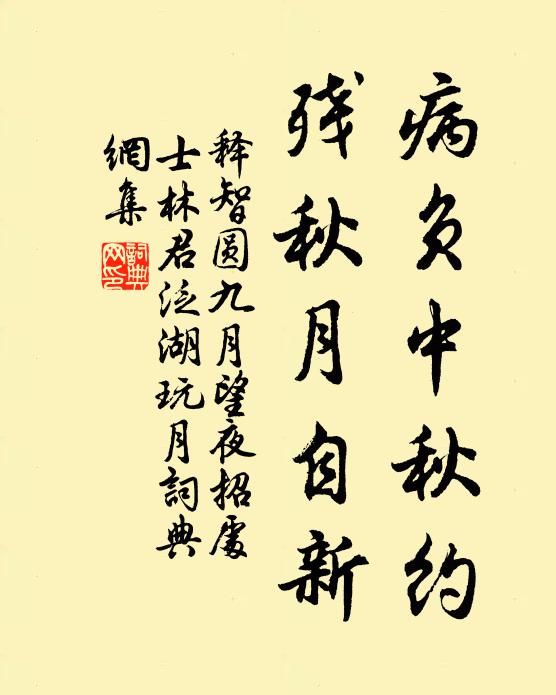 病负中秋约
残秋月自新
释智圆九月望夜招處
士林君泛湖玩月詞典
網集
詞典網印